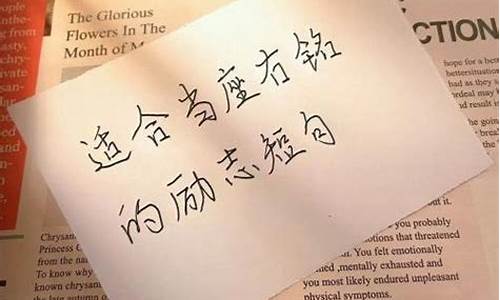 The Glorious
Flowers In The
Month of
CTION
适合当座右铭
的励志短句
hope for a
had as they
ordeal may
d results
the
Chrysan
Princess
from the na
To know why
known chrysan
you probably
that threatened
You felt emotionally
,mentally exhausted and
you most likely endured unpleasant
physical symptoms.